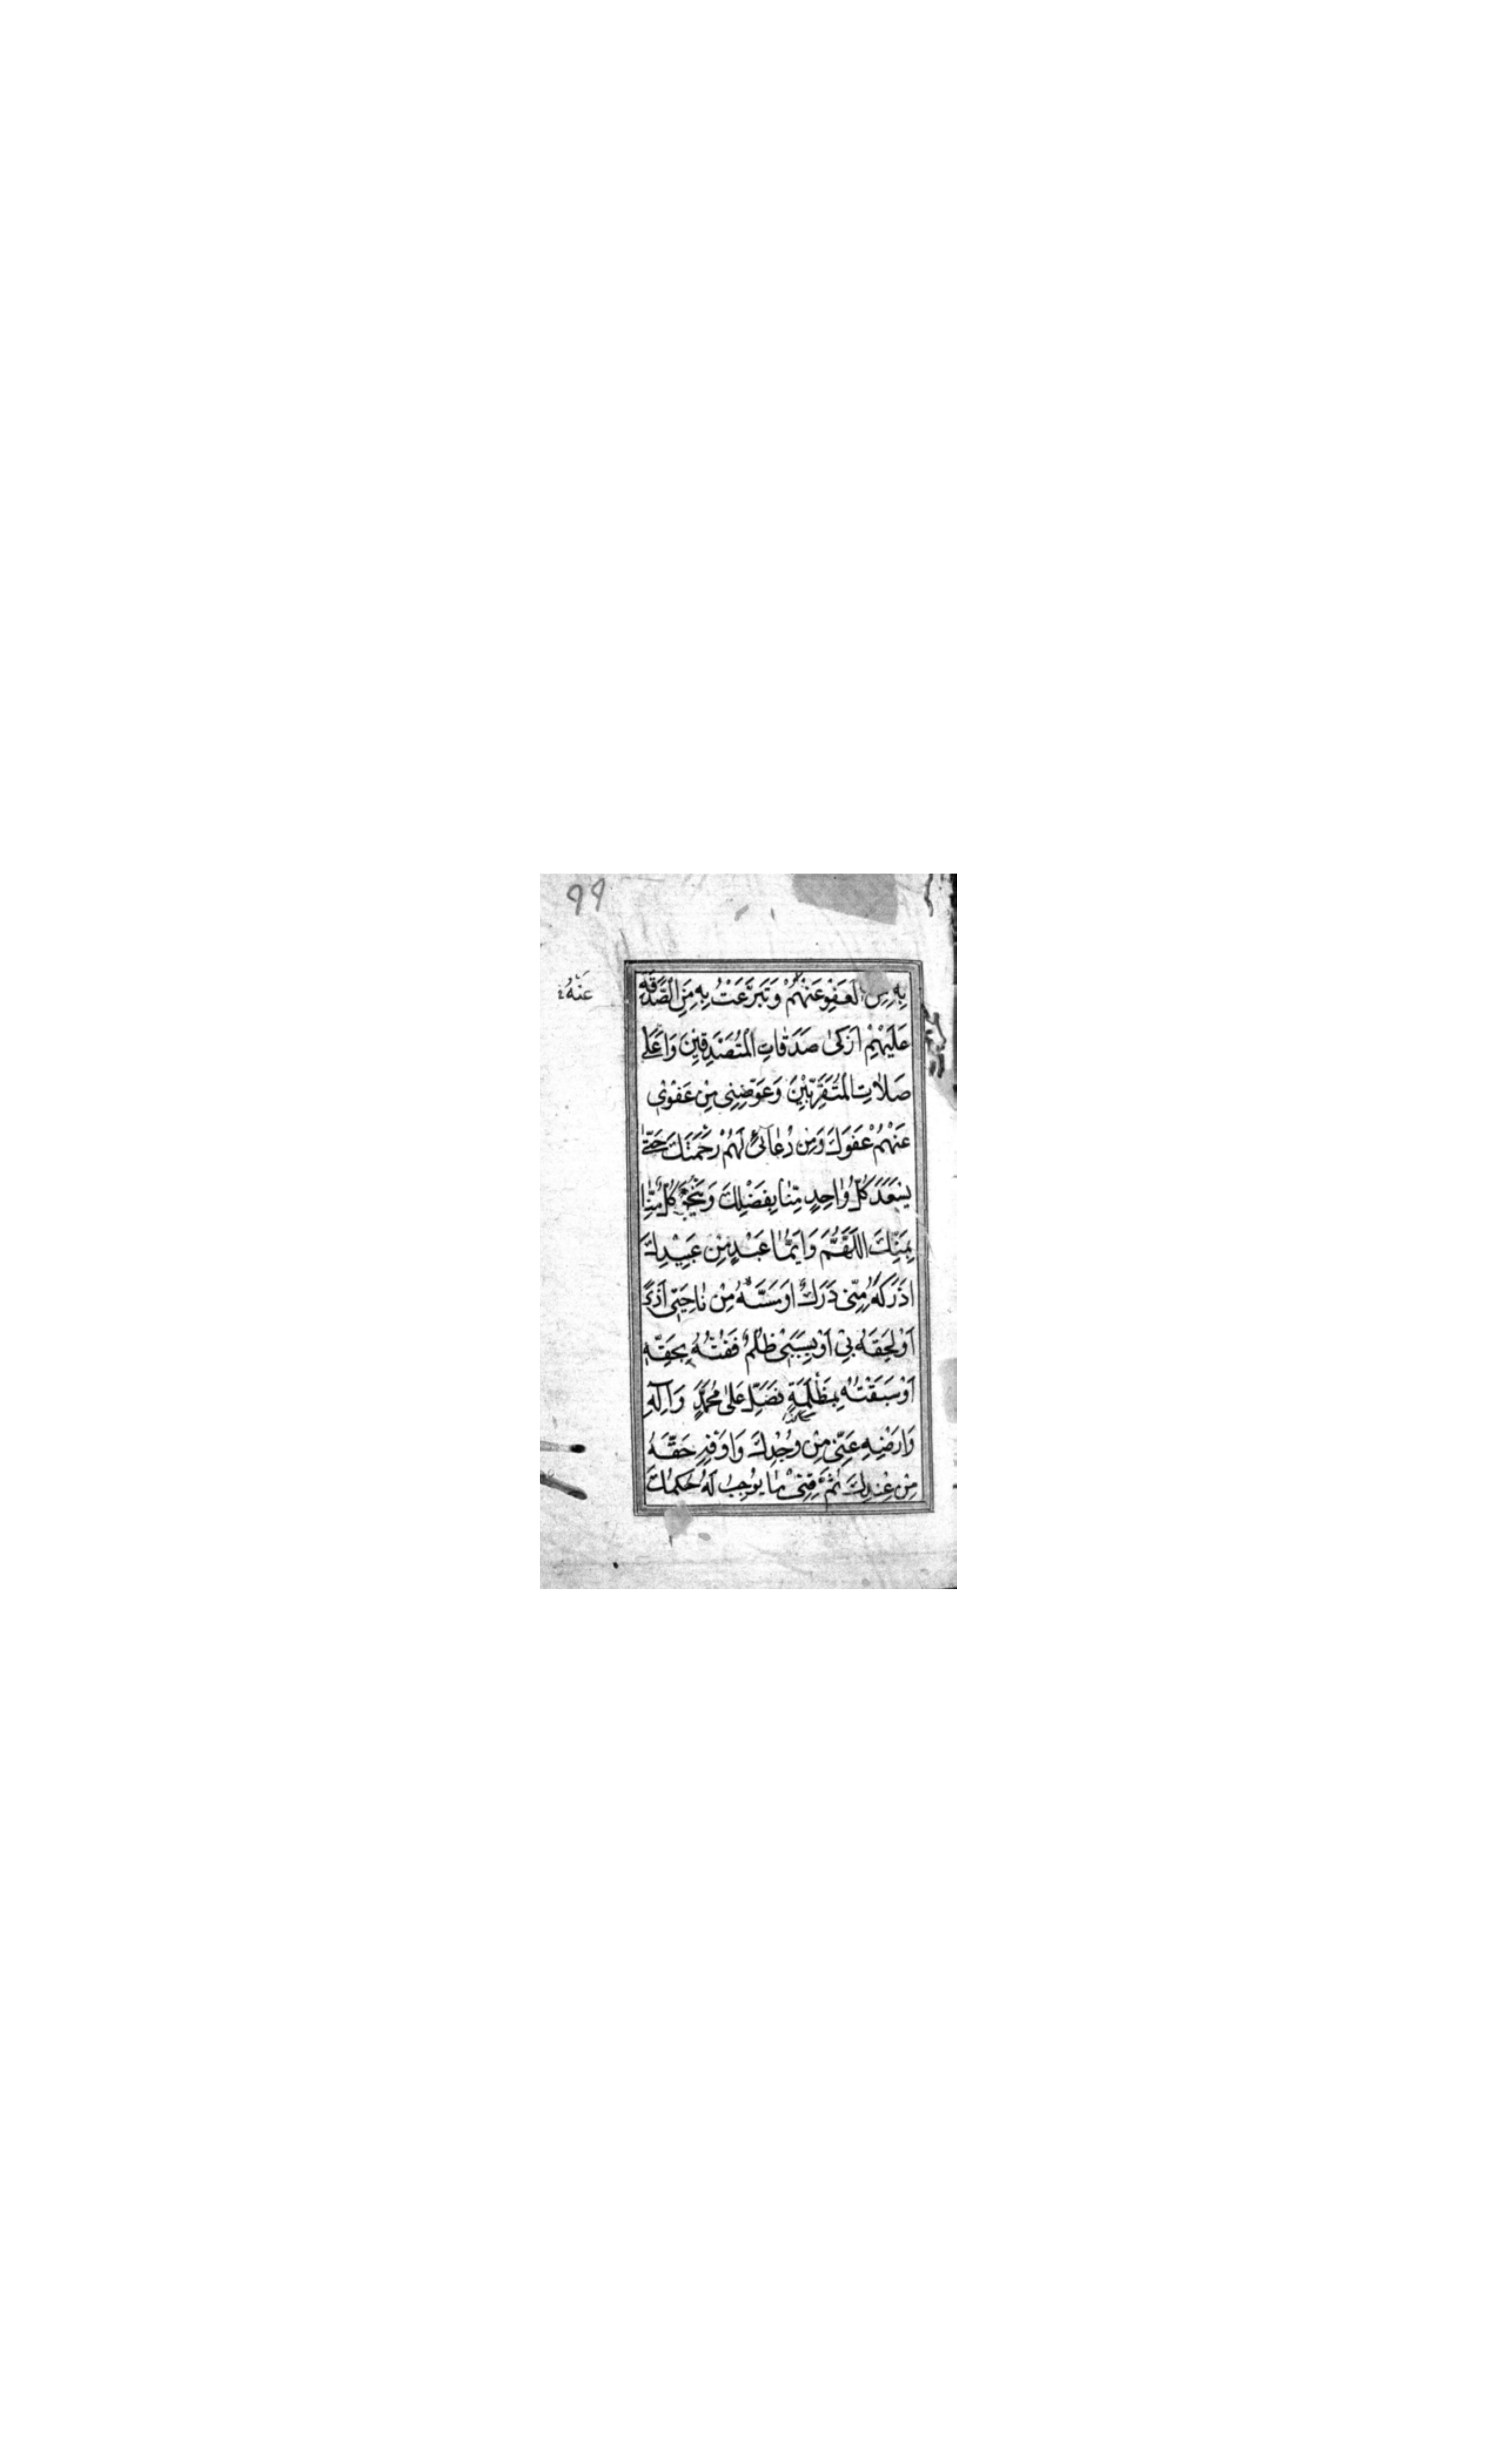 ۹۹
عَنْهُ
بِهِ مِنَ الْعَفْوِ عَنْهُمْ وَتَبَرَّعْتُ بِهِ مِنَ الصَّدَقَةِ
عَلَيْهِمْ اَزْكىٰ صَدَقٰاتِ الْمُتَصَدِّقِيْنَ وَاَعْلٰى
صَلاٰتِ الْمُتَقَرِّبِيْنَ وَعَوِّضْنِي مِنْ عَفْوِيْ
عَنْهُمْ عَفْوَكَ وَمِنْ دُعٰآئِيْ لَهُمْ رَحْمَتَكَ حَتّٰى
يَسْعَدَ كُلُّ وٰاحِدٍ مِنّٰا بِفَضْلِكَ وَيَنْجُوَ كُلٌّ مِنّٰا
بِمَنِّكَ اَللّٰهُمَّ وَاَيُّمٰا عَبْدٍ مِنْ عَبِيْدِكَ
اَدْرَكَهُ مِنّي دَرَكٌ اَوْ مَسَّهُ مِنْ نٰاحِيَتي اَذًى
اَوْ لَحِقَهُ بِيْ اَوْ بِسَبَبي ظُلْمٌ فَفُتُّهُ بِحَقِّهِ
اَوْ سَبَقْتُهُ بِمَظْلِمَتِهِ فَصَلِّ عَلىٰ مُحَمَّدٍ وَاٰلِهِ
وَاَرْضِهِ عَنّي مِنْ وُجْدِكَ وَاَوْفِهِ حَقَّهُ
مِنْ عِنْدِكَ ثُمَّ قِنيْ مٰا يُوْجِبُ لَهُ حُكْمُكَ